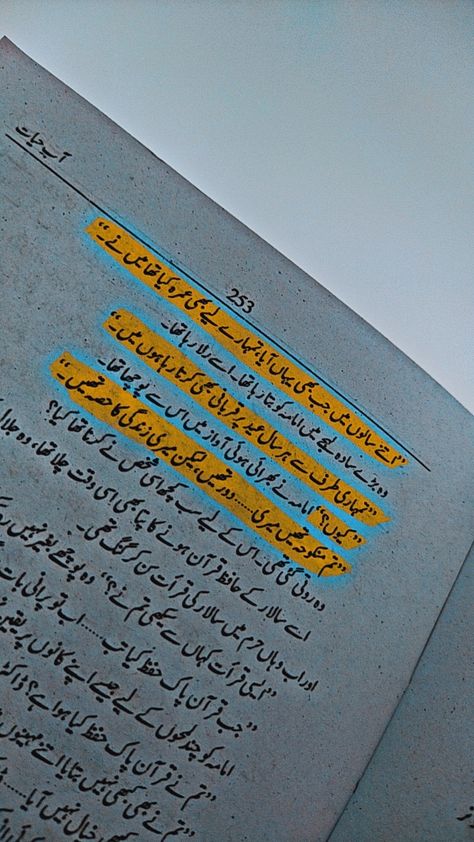 آبِ حیات
253
”اتنے سالوں میں جب بھی یہاں آیا، تمہارے لیے بھی عمرہ کیا تھا میں نے۔“
وہ بڑے سادہ لہجے میں امامہ کو بتا رہا تھا۔ اسے رلا رہا تھا۔
”تمہاری طرف سے ہر سال عید پر قربانی بھی کرتا رہا ہوں میں۔“
”کیوں؟“ امامہ نے بھرائی ہوئی آواز میں اس سے پوچھا تھا۔
”تم منکوحہ تھیں میری..... دور تھیں، لیکن میری زندگی کا حصہ تھیں۔“
وہ روتی گئی تھی۔ اس کے لیے سب کچھ اسی شخص نے کرنا تھا کیا؟
اسے سالار کے حافظ قرآن ہونے کا پتا بھی اسی وقت چلا تھا، وہ جلا
اور اب وہاں حرم میں سالار کی قرأت سن کر گنگ تھی۔
”ایسی قرأت کہاں سے سیکھی تم نے؟“ وہ پوچھے بغیر نہیں رہ
”جب قرآن پاک حفظ کیا تب..... اب تو پرانی بات
امامہ کو چند لمحوں کے لیے جیسے اپنے کانوں پر یقین
”تم نے قرآن پاک حفظ کیا ہوا ہے؟ ڈاکٹر
”تم نے بھی کبھی نہیں بتایا، اتنے مہینوں
خیال نہیں آیا.....